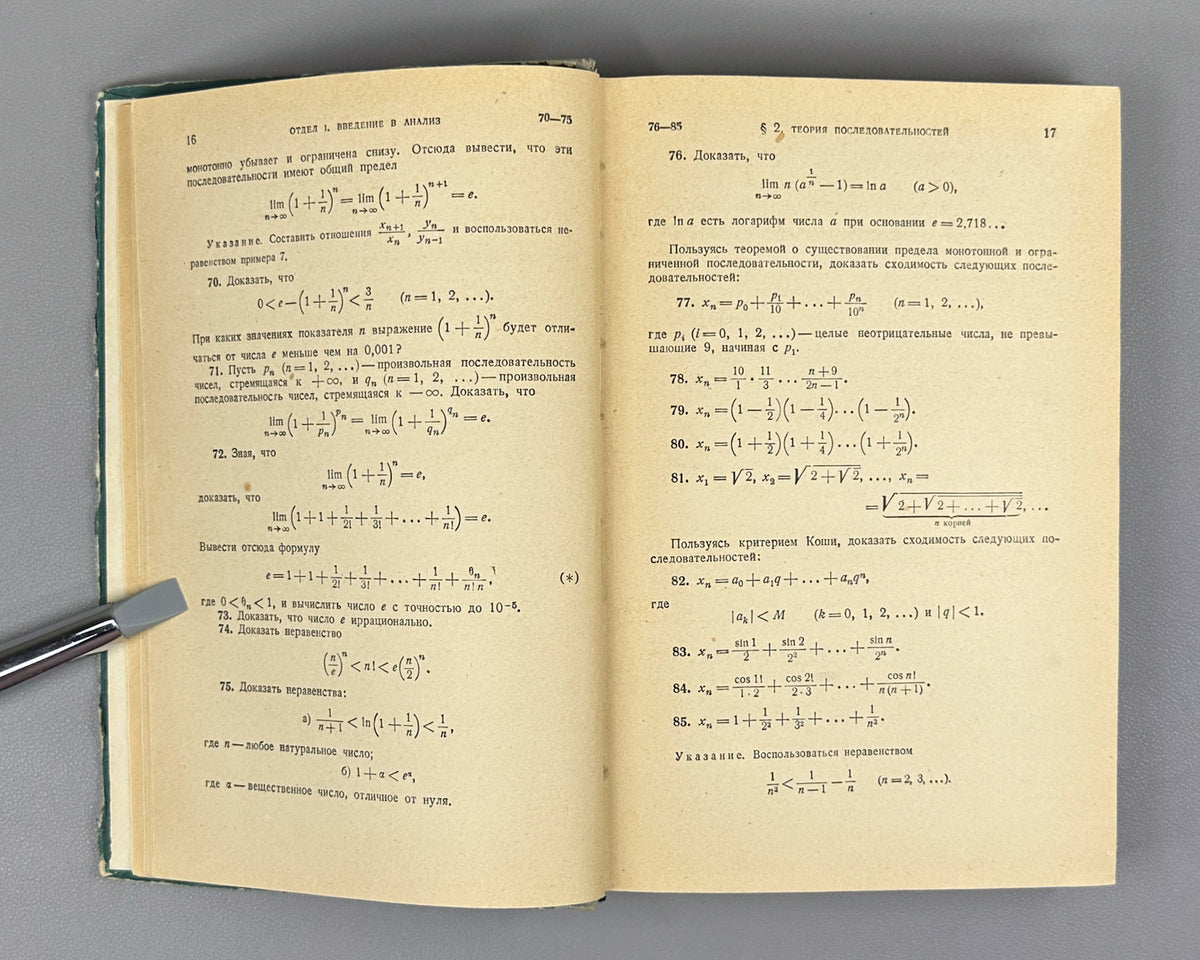 16
ОТДЕЛ I. ВВЕДЕНИЕ В АНАЛИЗ
70—75
монотонно убывает и ограничена снизу. Отсюда вывести, что эти
последовательности имеют общий предел
lim_{n→∞} (1 + 1/n)^n = lim_{n→∞} (1 + 1/n)^{n+1} = e.
Указание. Составить отношения x_{n+1}/x_n, y_n/y_{n−1} и воспользоваться не-
равенством примера 7.
70. Доказать, что
0 < e − (1 + 1/n)^n < 3/n (n = 1, 2, ...).
При каких значениях показателя n выражение (1 + 1/n)^n будет отли-
чаться от числа e меньше чем на 0,001?
71. Пусть p_n (n = 1, 2, ...) — произвольная последовательность
чисел, стремящаяся к +∞, и q_n (n = 1, 2, ...) — произвольная
последовательность чисел, стремящаяся к —∞. Доказать, что
lim_{n→∞} (1 + 1/p_n)^{p_n} = lim_{n→∞} (1 + 1/q_n)^{q_n} = e.
72. Зная, что
lim_{n→∞} (1 + 1/n)^n = e,
доказать, что
lim_{n→∞} (1 + 1 + 1/2! + 1/3! + ... + 1/n!) = e.
Вывести отсюда формулу
e = 1 + 1 + 1/2! + 1/3! + ... + 1/n! + θ_n/(n! n), (*)
где 0 < θ_n < 1, и вычислить число e с точностью до 10^{−5}.
73. Доказать, что число e иррационально.
74. Доказать неравенство
(n/e)^n < n! < e (n/2)^n.
75. Доказать неравенства:
а) 1/(n+1) < ln (1 + 1/n) < 1/n,
где n — любое натуральное число;
б) 1 + α < e^α,
где α — вещественное число, отличное от нуля.
76—85
§ 2. ТЕОРИЯ ПОСЛЕДОВАТЕЛЬНОСТЕЙ
17
76. Доказать, что
lim_{n→∞} n (a^{1/n} − 1) = ln a (a > 0),
где ln a есть логарифм числа a при основании e = 2,718...
Пользуясь теоремой о существовании предела монотонной и огра-
ниченной последовательности, доказать сходимость следующих после-
довательностей:
77. x_n = p_0 + p_1/10 + ... + p_n/10^n (n = 1, 2, ...),
где p_i (i = 0, 1, 2, ...) — целые неотрицательные числа, не превы-
шающие 9, начиная с p_1.
78. x_n = 10/1 · 11/3 ... (n+9)/(2n−1).
79. x_n = (1 − 1/2)(1 − 1/4)...(1 − 1/2^n).
80. x_n = (1 + 1/2)(1 + 1/4)...(1 + 1/2^n).
81. x_1 = √2, x_2 = √(2 + √2), ..., x_n =
= √(2 + √(2 + ... + √2)), ...
n корней
Пользуясь критерием Коши, доказать сходимость следующих по-
следовательностей:
82. x_n = a_0 + a_1 q + ... + a_n q^n,
где
|a_k| < M (k = 0, 1, 2, ...) и |q| < 1.
83. x_n = sin 1/2 + sin 2/2^2 + ... + sin n/2^n.
84. x_n = cos 1!/(1·2) + cos 2!/(2·3) + ... + cos n!/(n(n+1)).
85. x_n = 1 + 1/2^2 + 1/3^2 + ... + 1/n^2.
Указание. Воспользоваться неравенством
1/n^2 < 1/(n−1) − 1/n (n = 2, 3, ...).